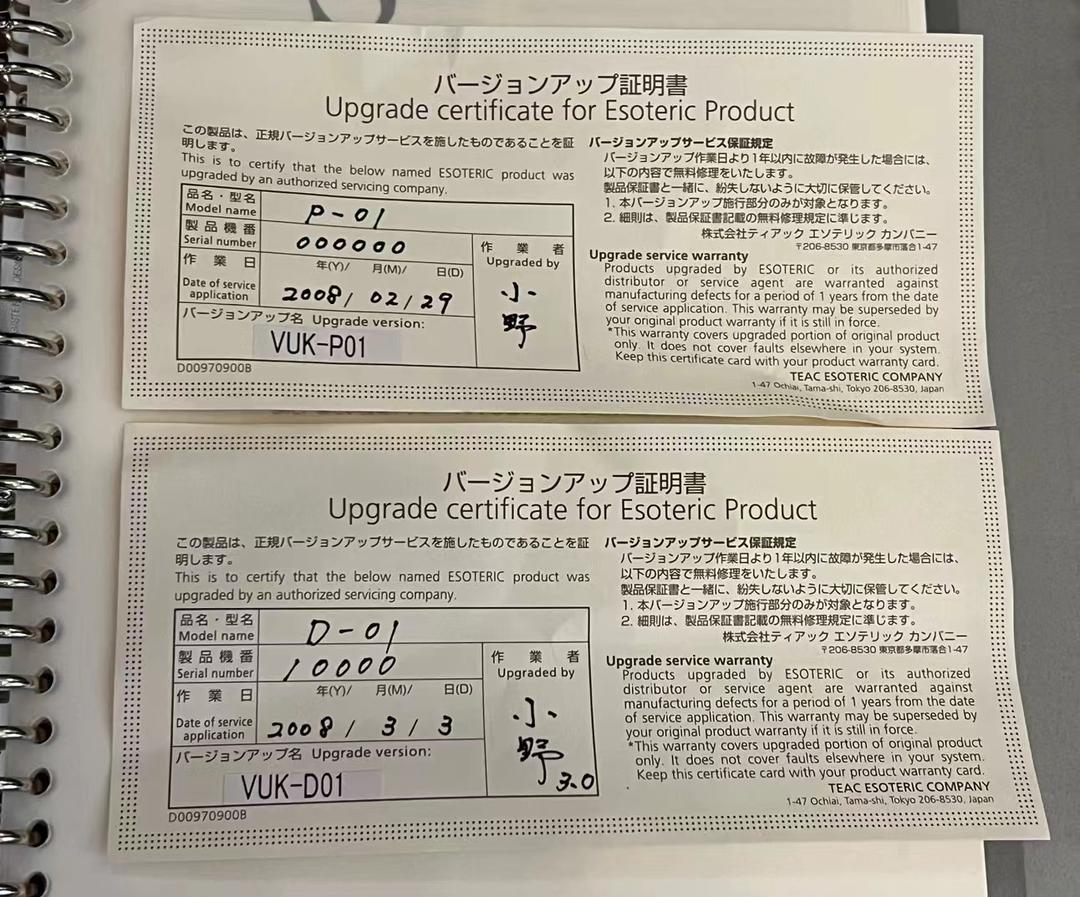 バージョンアップ証明書
Upgrade certificate for Esoteric Product
この製品は、正規バージョンアップサービスを施したものであることを証
明します。
This is to certify that the below named ESOTERIC product was
upgraded by an authorized servicing company.
品名・型名
Model name
P-01
製品機番
Serial number
000000
作業日
Date of service
application
年(Y)/ 月(M)/ 日(D)
2008/ 02/29
作業者
Upgraded by
小野
バージョンアップ名 Upgrade version:
VUK-P01
D00970900B
バージョンアップサービス保証規定
バージョンアップ作業日より1年以内に故障が発生した場合には、
以下の内容で無料修理をいたします。
製品保証書と一緒に、紛失しないように大切に保管してください。
1. 本バージョンアップ施行部分のみが対象となります。
2. 細則は、製品保証書記載の無料修理規定に準じます。
株式会社ティアック エソテリック カンパニー
〒206-8530 東京都多摩市落合1-47
Upgrade service warranty
Products upgraded by ESOTERIC or its authorized
distributor or service agent are warranted against
manufacturing defects for a period of 1 years from the date
of service application. This warranty may be superseded by
your original product warranty if it is still in force.
*This warranty covers upgraded portion of original product
only. It does not cover faults elsewhere in your system.
Keep this certificate card with your product warranty card.
TEAC ESOTERIC COMPANY
1-47 Ochiai, Tama-shi, Tokyo 206-8530, Japan
バージョンアップ証明書
Upgrade certificate for Esoteric Product
この製品は、正規バージョンアップサービスを施したものであることを証
明します。
This is to certify that the below named ESOTERIC product was
upgraded by an authorized servicing company.
品名・型名
Model name
D-01
製品機番
Serial number
10000
作業日
Date of service
application
年(Y)/ 月(M)/ 日(D)
2008 / 3 / 3
作業者
Upgraded by
小野
3.0
バージョンアップ名 Upgrade version:
VUK-D01
D00970900B
バージョンアップサービス保証規定
バージョンアップ作業日より1年以内に故障が発生した場合には、
以下の内容で無料修理をいたします。
製品保証書と一緒に、紛失しないように大切に保管してください。
1. 本バージョンアップ施行部分のみが対象となります。
2. 細則は、製品保証書記載の無料修理規定に準じます。
株式会社ティアック エソテリック カンパニー
〒206-8530 東京都多摩市落合1-47
Upgrade service warranty
Products upgraded by ESOTERIC or its authorized
distributor or service agent are warranted against
manufacturing defects for a period of 1 years from the date
of service application. This warranty may be superseded by
your original product warranty if it is still in force.
*This warranty covers upgraded portion of original product
only. It does not cover faults elsewhere in your system.
Keep this certificate card with your product warranty card.
TEAC ESOTERIC COMPANY
1-47 Ochiai, Tama-shi, Tokyo 206-8530, Japan